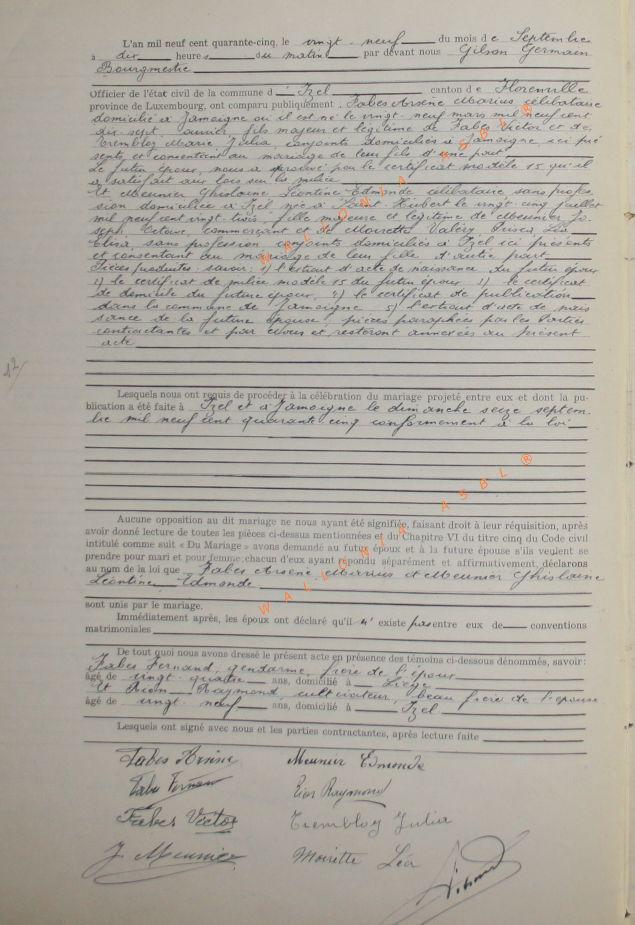 L'an mil neuf cent quarante-cinq, le vingt-neuf du mois de Septembre
à dix heures du matin par devant nous Gilson Germain
Bourgmestre
Officier de l'état civil de la commune d'Izel canton de Florenville
province de Luxembourg, ont comparu publiquement : Fabes Arsène Marius célibataire
domicilié à Jamoigne où il est né le vingt-neuf mars mil neuf cent
dix-sept, ouvrier, fils majeur et légitime de Fabes Victor et de
Tremblog Marie Julia, conjoints domiciliés à Jamoigne ici pré
sents et consentant au mariage de leur fils d'une part
Le futur époux, nous a prouvé par le certificat modèle 15 qu'il
a satisfait aux lois sur la milice
Et Meunier Ghislaine Léontine Edmonde célibataire sans profes
sion domiciliée à Izel née à Saint Hubert le vingt cinq juillet
mil neuf cent vingt trois, fille majeure et légitime de Meunier Jo
seph, Octave, commerçant et de Moirette Valéry, Prisca, Léa
Elisa, sans profession, conjoints domiciliés à Izel ici présents
et consentant au mariage de leur fille d'autre part
Pièces produites savoir : 1) l'extrait d'acte de naissance du futur époux
2) le certificat de milice modèle 15 du futur époux 3) le certificat
de domicile du future époux, 4) le certificat de publication
dans la commune de Jamoigne 5) l'extrait d'acte de nais
sance de la future épouse, pièces paraphées par les Parties
contractantes et par nous et resteront annexées au présent
acte
12
Lesquels nous ont requis de procéder à la célébration du mariage projeté entre eux et dont la pu-
blication a été faite à Izel et à Jamoigne le dimanche seize septem-
bre mil neuf cent quarante cinq conformément à la loi
Aucune opposition au dit mariage ne nous ayant été signifiée, faisant droit à leur réquisition, après
avoir donné lecture de toutes les pièces ci-dessus mentionnées et du Chapitre VI du titre cinq du Code civil
intitulé comme suit « Du Mariage » avons demandé au futur époux et à la future épouse s'ils veulent se
prendre pour mari et pour femme; chacun d'eux ayant répondu séparément et affirmativement, déclarons
au nom de la loi que Fabes Arsène Marius et Meunier Ghislaine
Léontine Edmonde
sont unis par le mariage.
Immédiatement après, les époux ont déclaré qu'il n'existe pas entre eux de conventions
matrimoniales
De tout quoi nous avons dressé le présent acte en présence des témoins ci-dessous dénommés, savoir :
Fabes Fernand, gendarme, frère de l'époux
âgé de vingt-quatre ans, domicilié à Liège
Et Rion Raymond, cultivateur, beau frère de l'épouse
âgé de vingt-neuf ans, domicilié à Izel
Lesquels ont signé avec nous et les parties contractantes, après lecture faite
Fabes Arsène Meunier Edmonde
Fabes Fernand Rion Raymond
Fabes Victor Tremblog Julia
J. Meunier Moirette Léa
WALLONIA ASBL ®
WALLONIA ASBL ®